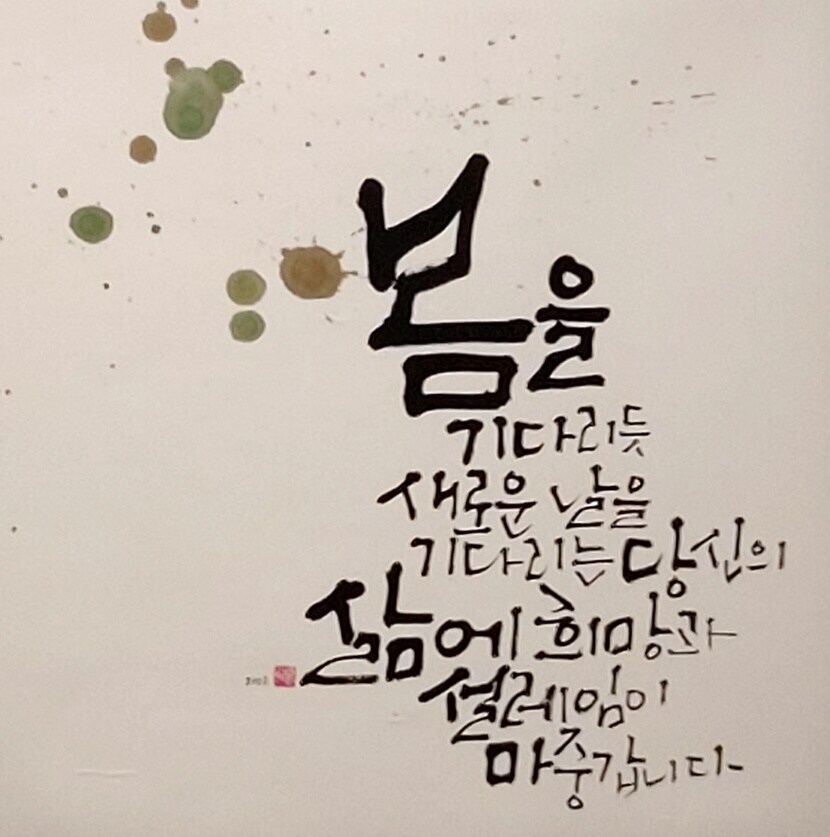 봄을
기다리듯
새로운 날을
기다리는 당신의
삶에 희망과
설레임이
마중갑니다